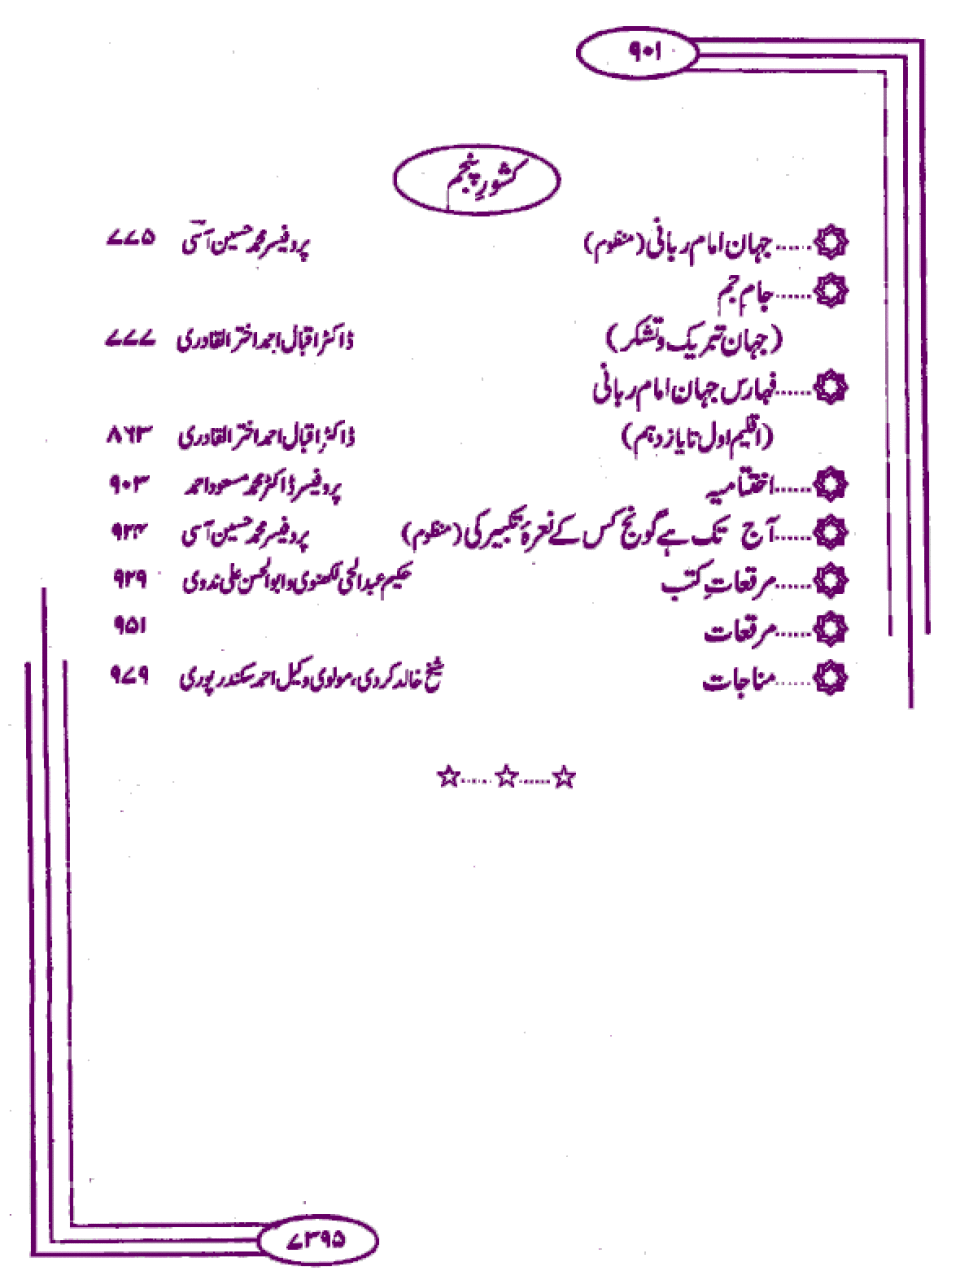 ۹۰۱
کشورِ پنجم
جہان امام ربانی (منظوم) پروفیسر محمد حسین آسیؔ ۷۷۵
جامِ جم
(جہان تبریک و تشکر) ڈاکٹر اقبال احمد اختر القادری ۷۷۷
فہارس جہان امام ربانی
(اقلیم اول تا یازدہم) ڈاکٹر اقبال احمد اختر القادری ۸۶۳
اختتامیہ پروفیسر ڈاکٹر محمد مسعود احمد ۹۰۳
آج تک ہے گونج کس کے نعرۂ تکبیر کی (منظوم) پروفیسر محمد حسین آسی ۹۲۴
مرقعاتِ کتب حکیم عبدالحی لکھنوی و ابوالحسن علی ندوی ۹۲۹
مرقعات ۹۵۱
مناجات شیخ خالد کردی، مولوی وکیل احمد سکندر پوری ۹۷۹
۷۳۹۵